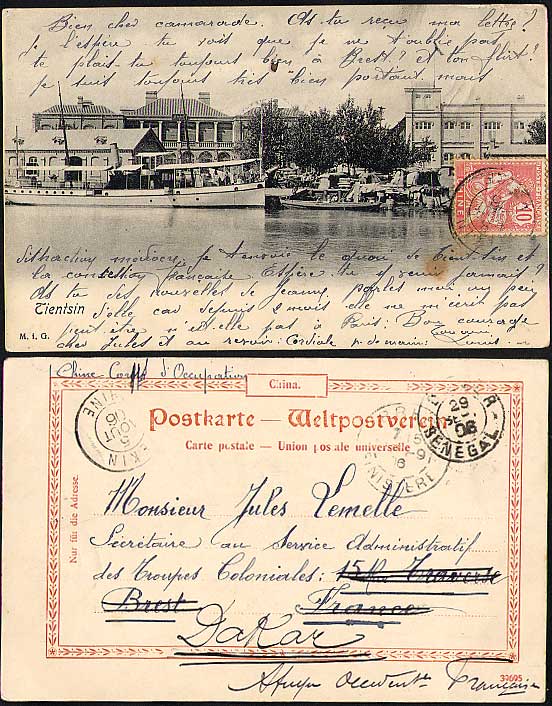 Bien cher camarade. As tu recu ma lettre?
Je l'espère tu vois que je ne t'oublie pas
te plais-tu toujours bien à Brest? et ton flirt?
je suis toujours très bien portant mais
10
situation médiocre, je t'envoie le quai de Tientsin et
la concession française. Espère-tu y venir jamais?
As tu des nouvelles de Jeanne, parles moi un peu
Tientsin
d'elle car depuis 2 mois elle ne m'écrit pas
peut être n'est-elle pas à Paris: Bon courage
M. I. G.
cher Jules et au revoir: Cordiale p. de main:
Chine-Corps d'Occupation
China.
CHINE
PEKIN
5
OCT
06
Postkarte – Weltpostverein.
Carte postale – Union postale universelle
29
06
SENEGAL
FINISTERE
Nur für die Adresse.
Monsieur Jules Lemelle
Secrétaire au Service Administratif
des Troupes Coloniales: 15 Rue Traverse
Brest France
Dakar
Afrique Occident^le Française
39695